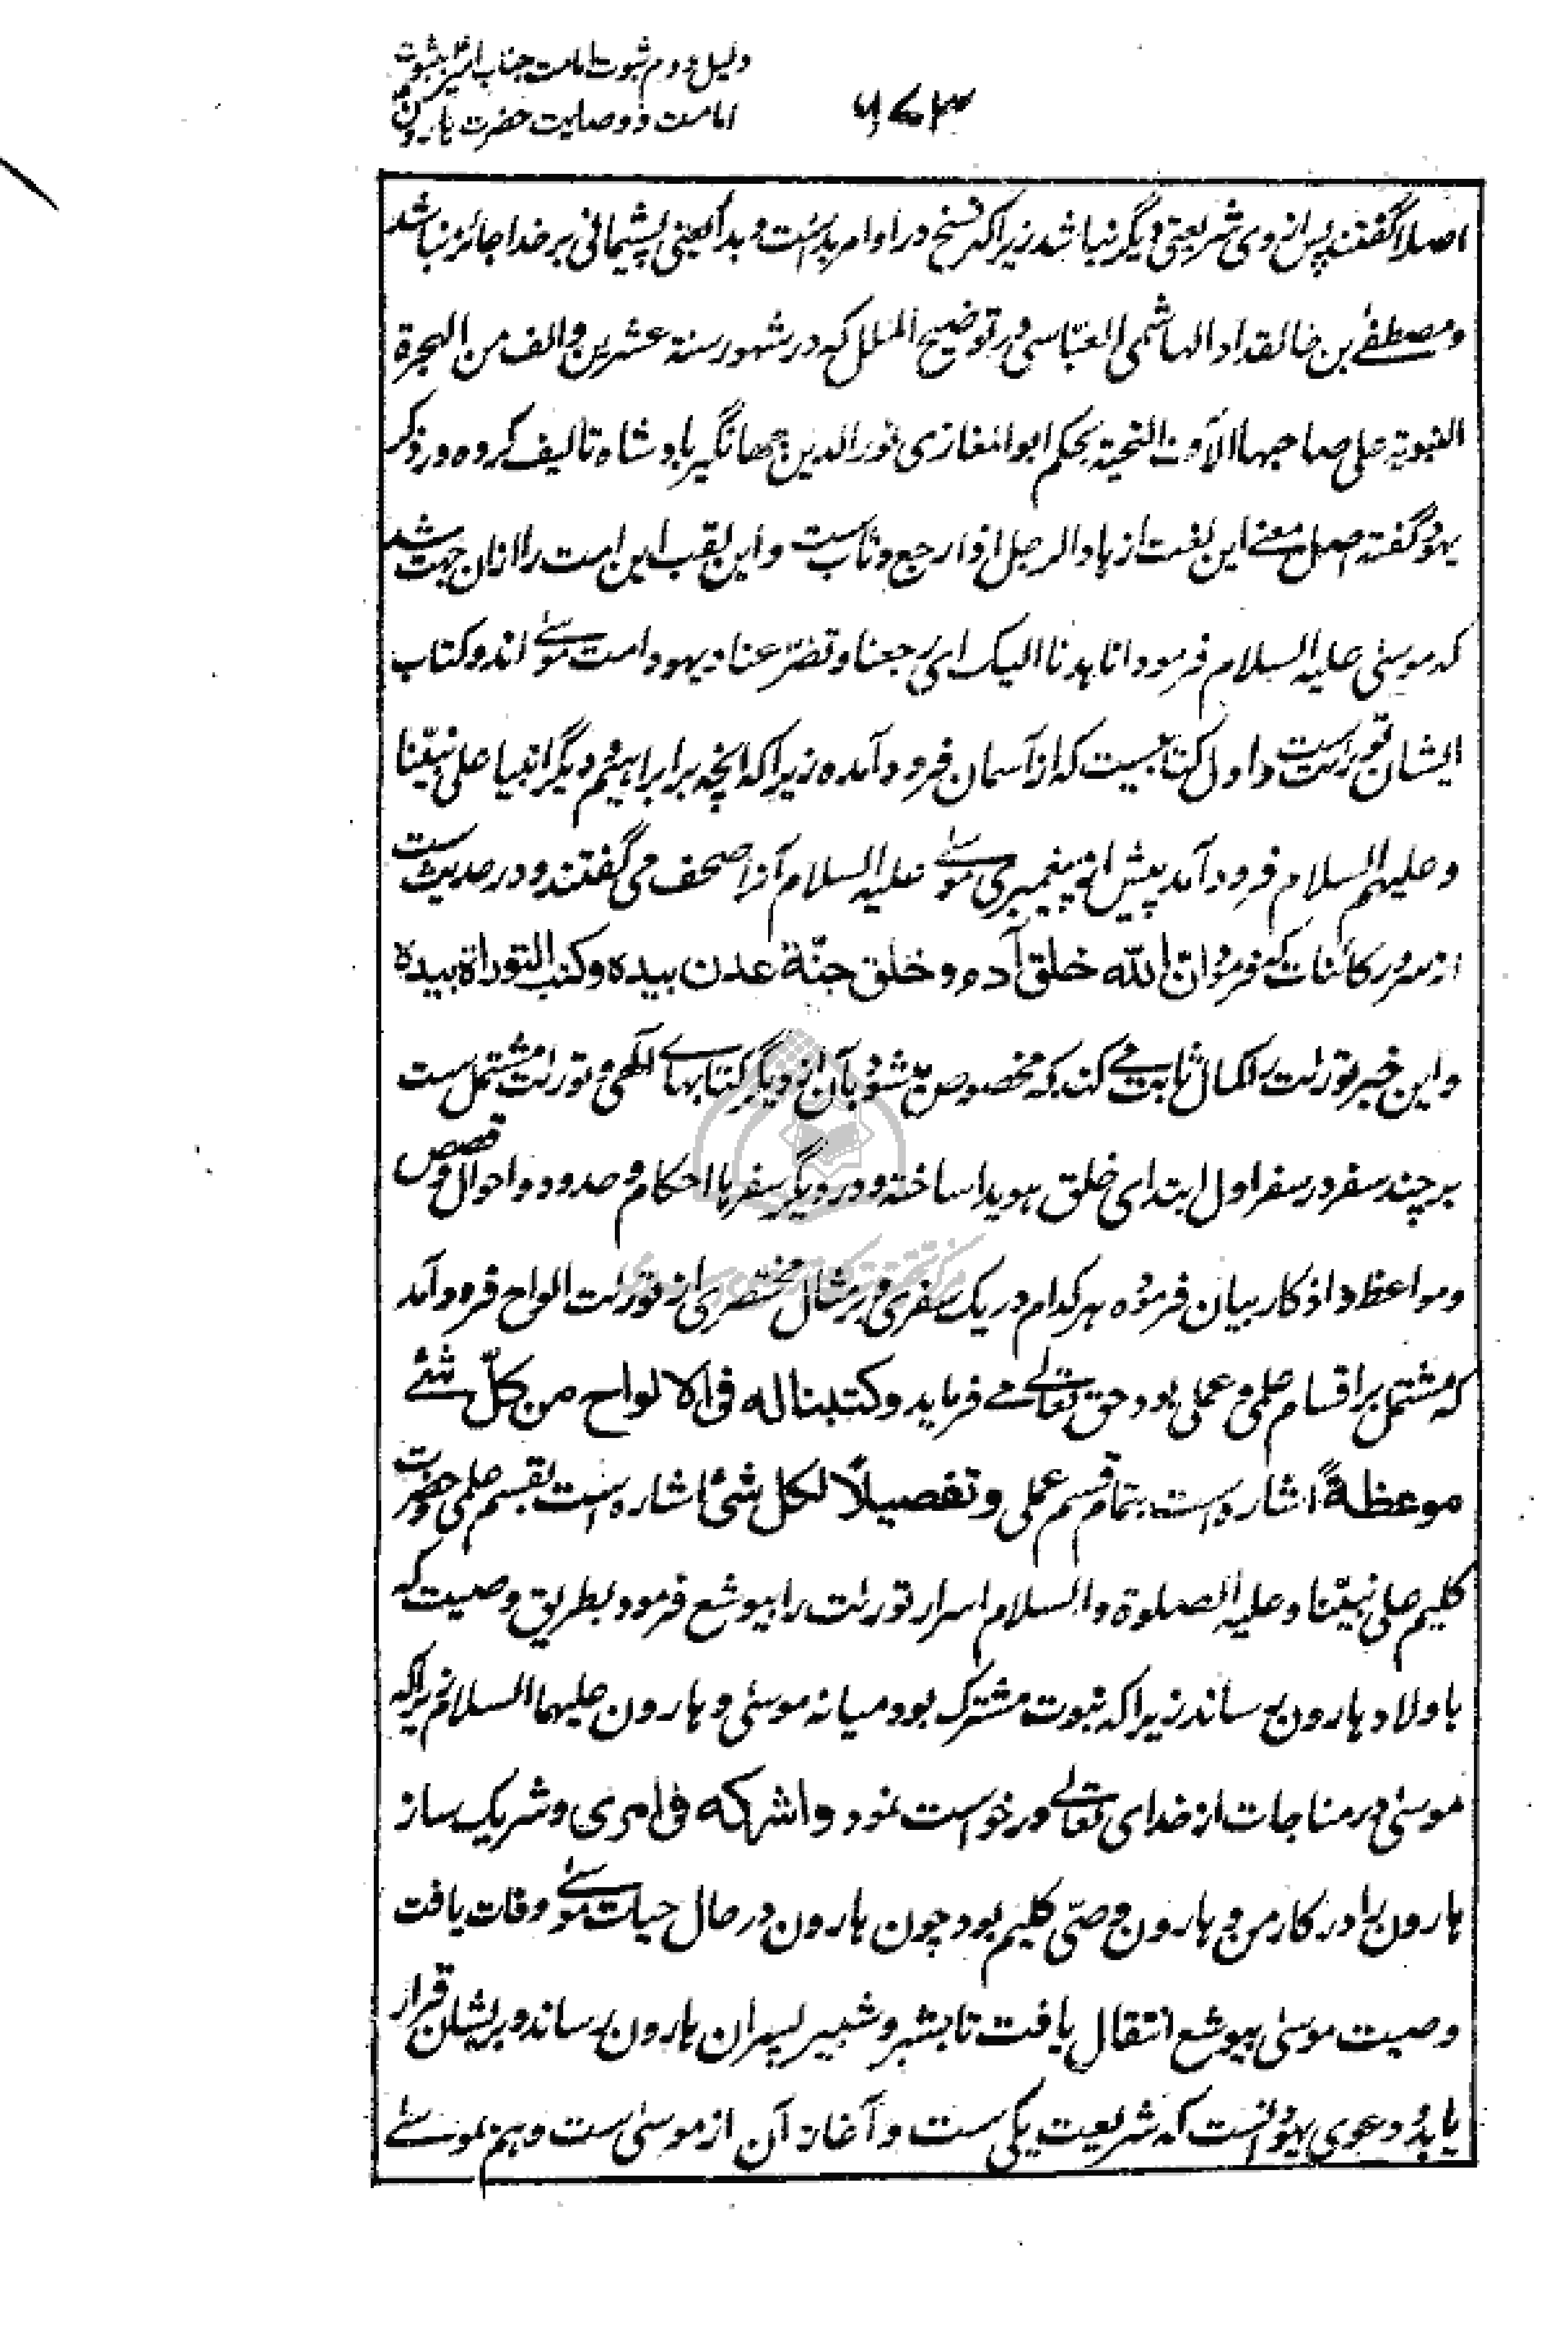 دلیل دوم ثبوت امامت جناب امیرؑ بثبوت
امامت و وصایت حضرت هارونؑ
۵۷۳
اصلا گفتند پس از وی شریعتی دیگر نباشد زیراکه نسخ در اوامر بداست و بدا یعنی پشیمانی بر خدا جائز نباشد
و مصطفے بن خالقداد الهاشمی العبّاسی در توضیح الملل که در شهور سنة عشرین و الف من الهجرة
النبویة علی صاحبها الآف التحیة بحکم ابوالمغازی نور الدین جهانگیر بادشاه تالیف کرده در ذکر
یهود گفته اصل معنے این لغت از هاد الرجل اذا رجع و تاب ست و این لقب این امت را ازان جهت شد
که موسیٰ علیه السلام فرمود انا هدنا الیک ای رجعنا و تضرّعنا و یهود امت موسےٰ اند و کتاب
ایشان تورٰت ست و اول کتابیست که از آسمان فرود آمده زیراکه انچه بر ابراهیم و دیگر انبیا علی نبیّنا
و علیهم السلام فرود آمد پیش از پیغمبری موسےٰ علیه السلام آنرا صحف می گفتند و در حدیث ست
از سرور کائنات که فرمود ان الله خلق آدم و خلق جنّة عدن بیده و کتب التوراة بیده
و این خبر تورٰت را کمال ثابت مے کند که مخصوص مے شود بآن از دیگر کتابهاے الٰهی و تورٰت مشتمل ست
بر چند سفر در سفر اول ابتدای خلق هویدا ساخته و در دیگر سفرها احکام و حدود و احوال و قصص
و مواعظ و اذکار بیان فرموده هر کدام در یک سفری و بر مثال مختصری از تورٰت الواح فرود آمد
که مشتمل بر اقسام علمی و عملی بود حق تعالےٰ مے فرماید و کتبنا له فی الالواح من کلّ شئے
موعظةً اشاره است بتمام قسم عملی و تفصیلاً لکل شئ اشاره است بقسم علمی و حضرت
کلیم علی نبیّنا و علیه الصلوة و السلام اسرار تورٰت را بیوشع فرمود بطریق وصیت که
باولاد هارون رساند زیراکه نبوت مشترک بود میانه موسیٰ و هارون علیهما السلام زیراکه
موسیٰ در مناجات از خدای تعالےٰ درخواست نمود و اشرکه فی امری و شریک ساز
هارون را در کار من و هارون وصّی کلیم بود چون هارون در حال حیات موسےٰ وفات یافت
وصیت موسیٰ بیوشع انتقال یافت تا بشبر و شبیر پسران هارون رساند و بریشان قرار
یابد و دعوی یهود آنست که شریعت یکی ست و آغاز آن از موسیٰ ست و هم بموسےٰ